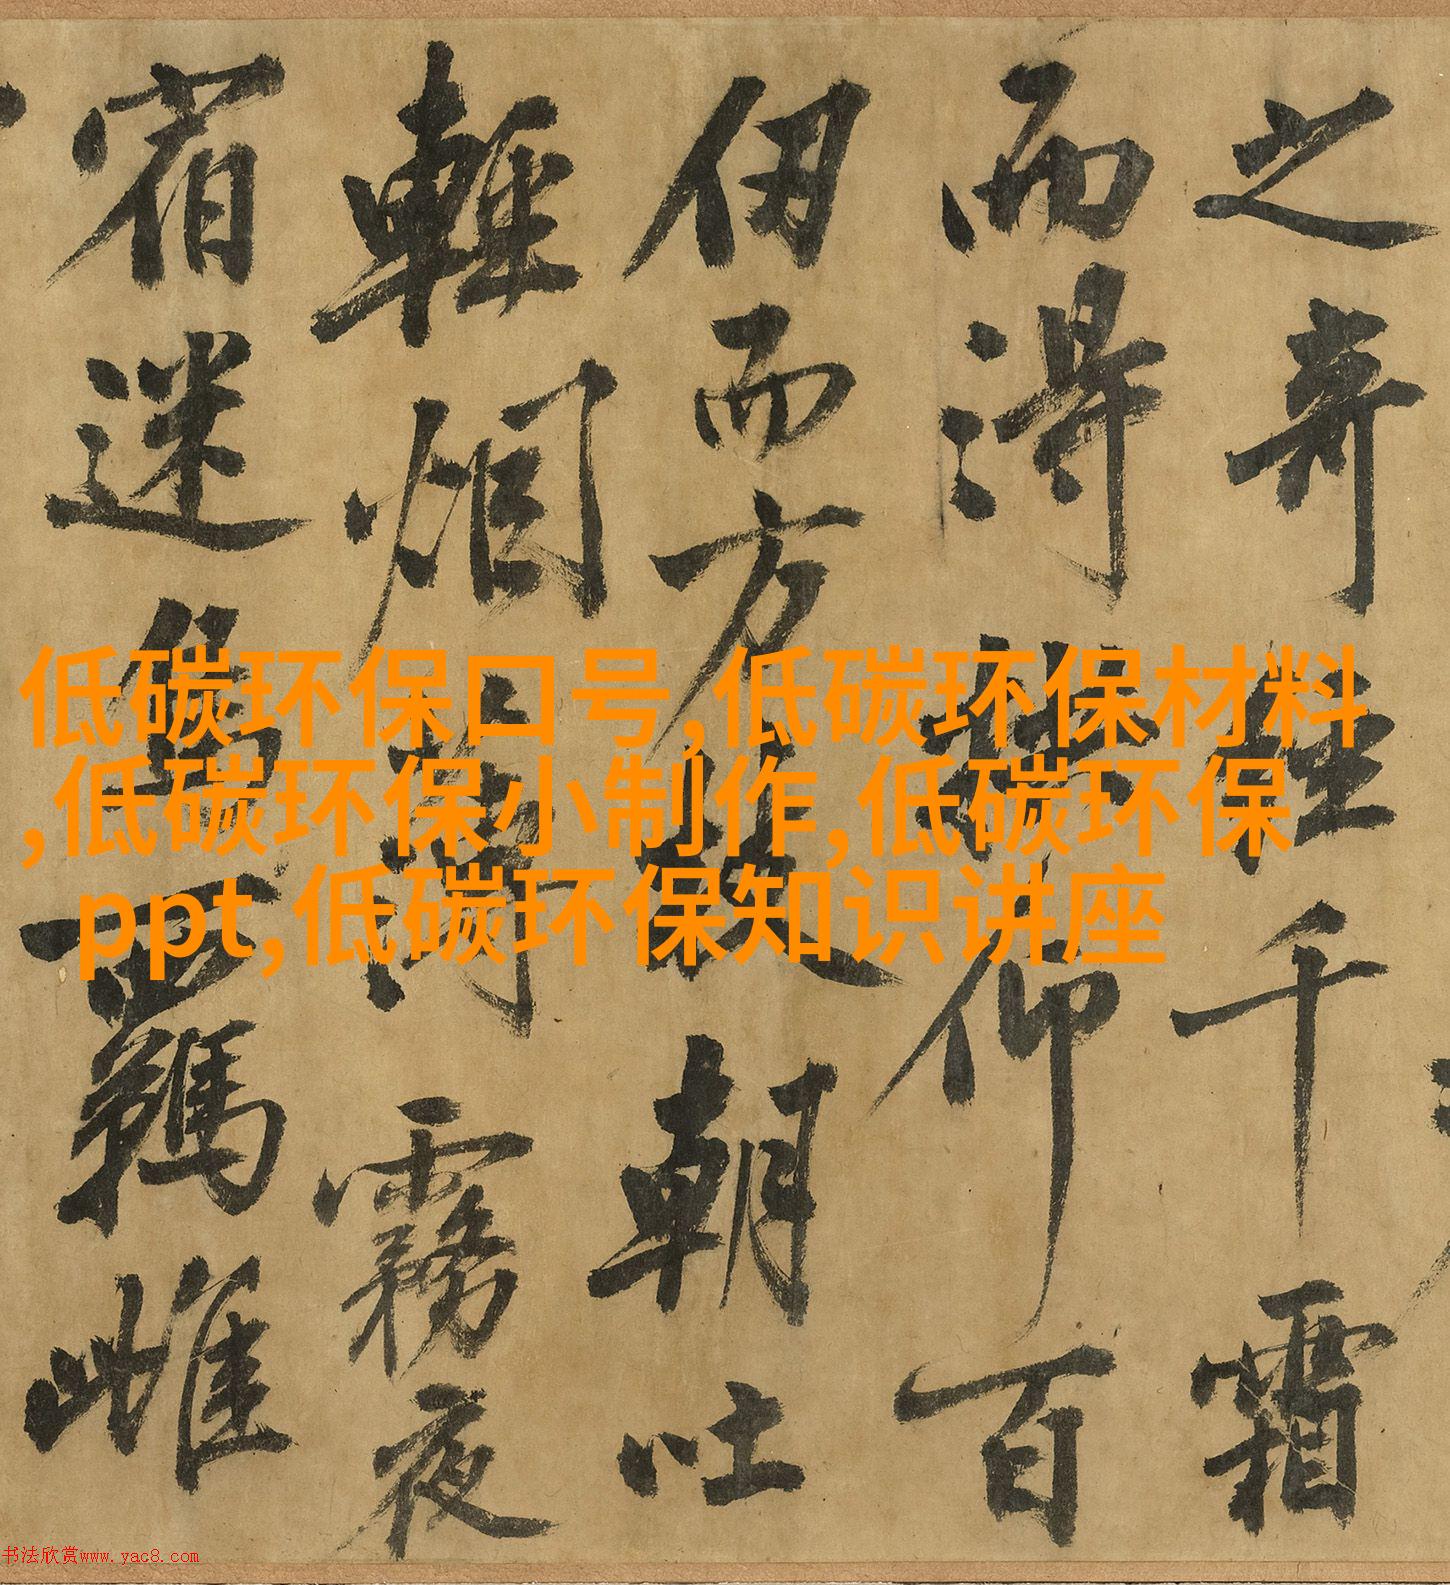 之奇千霜
而得仰百
仞而方朝吐
輕烟薄霧夜
宿迷鳥羈雌
低碳环保口号,低碳环保材料
,低碳环保小制作,低碳环保
ppt,低碳环保知识讲座
书法欣赏www.yac8.com